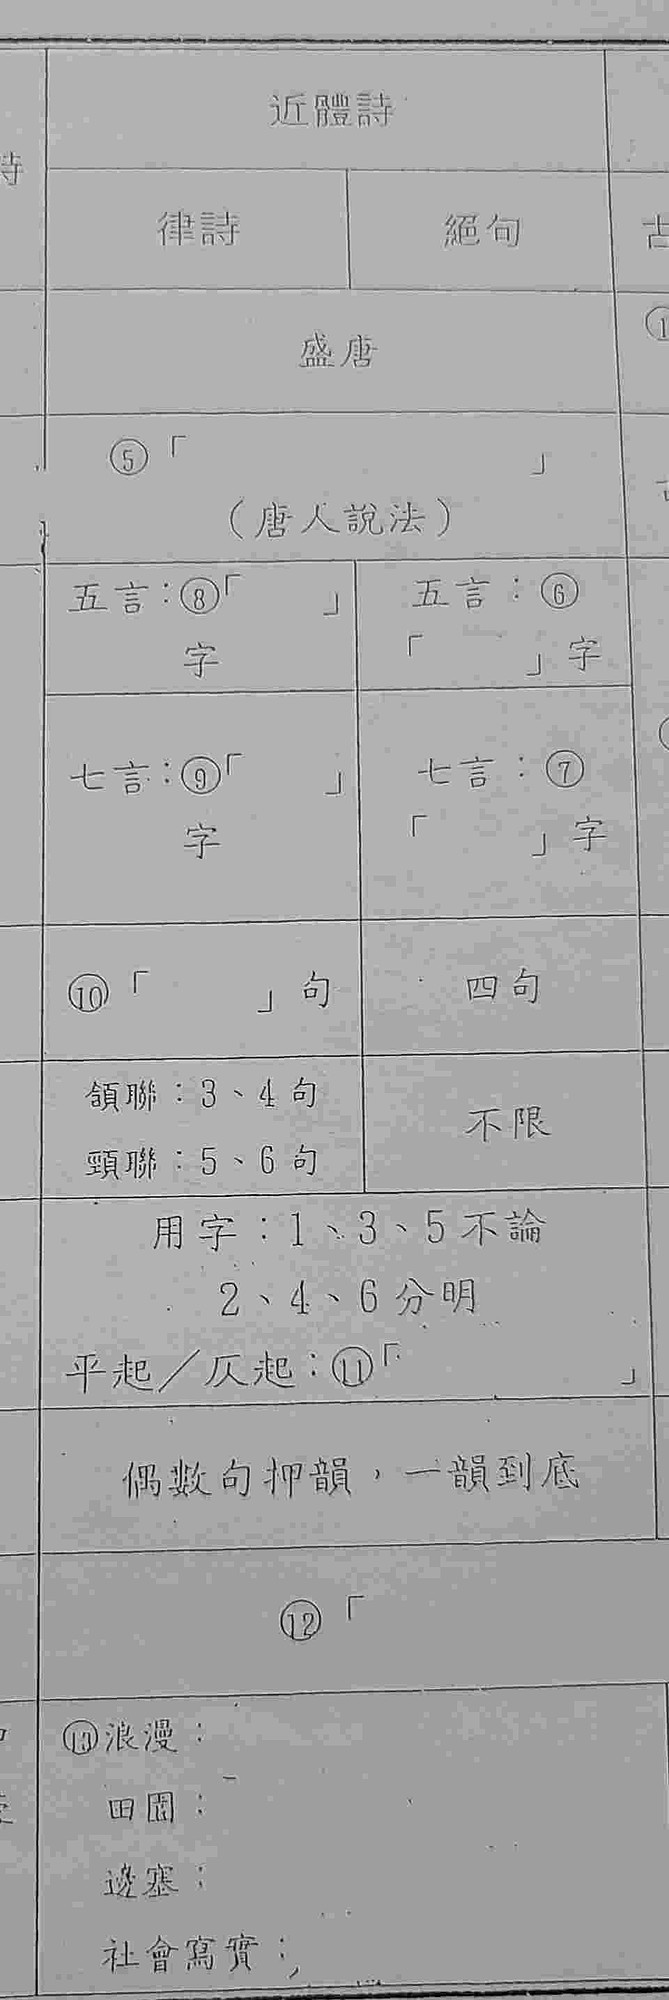 近體詩
詩
律詩
絕句
古
盛唐
①
⑤「 」
(唐人說法)
五言:⑧「 」
字
五言:⑥
「 」字
七言:⑨「 」
字
七言:⑦
「 」字
⑩「 」句
四句
頷聯:3、4句
頸聯:5、6句
不限
用字:1、3、5不論
2、4、6分明
平起/仄起:⑪「 」
偶數句押韻,一韻到底
⑫「
⑬浪漫:
田園:
邊塞:
社會寫實: